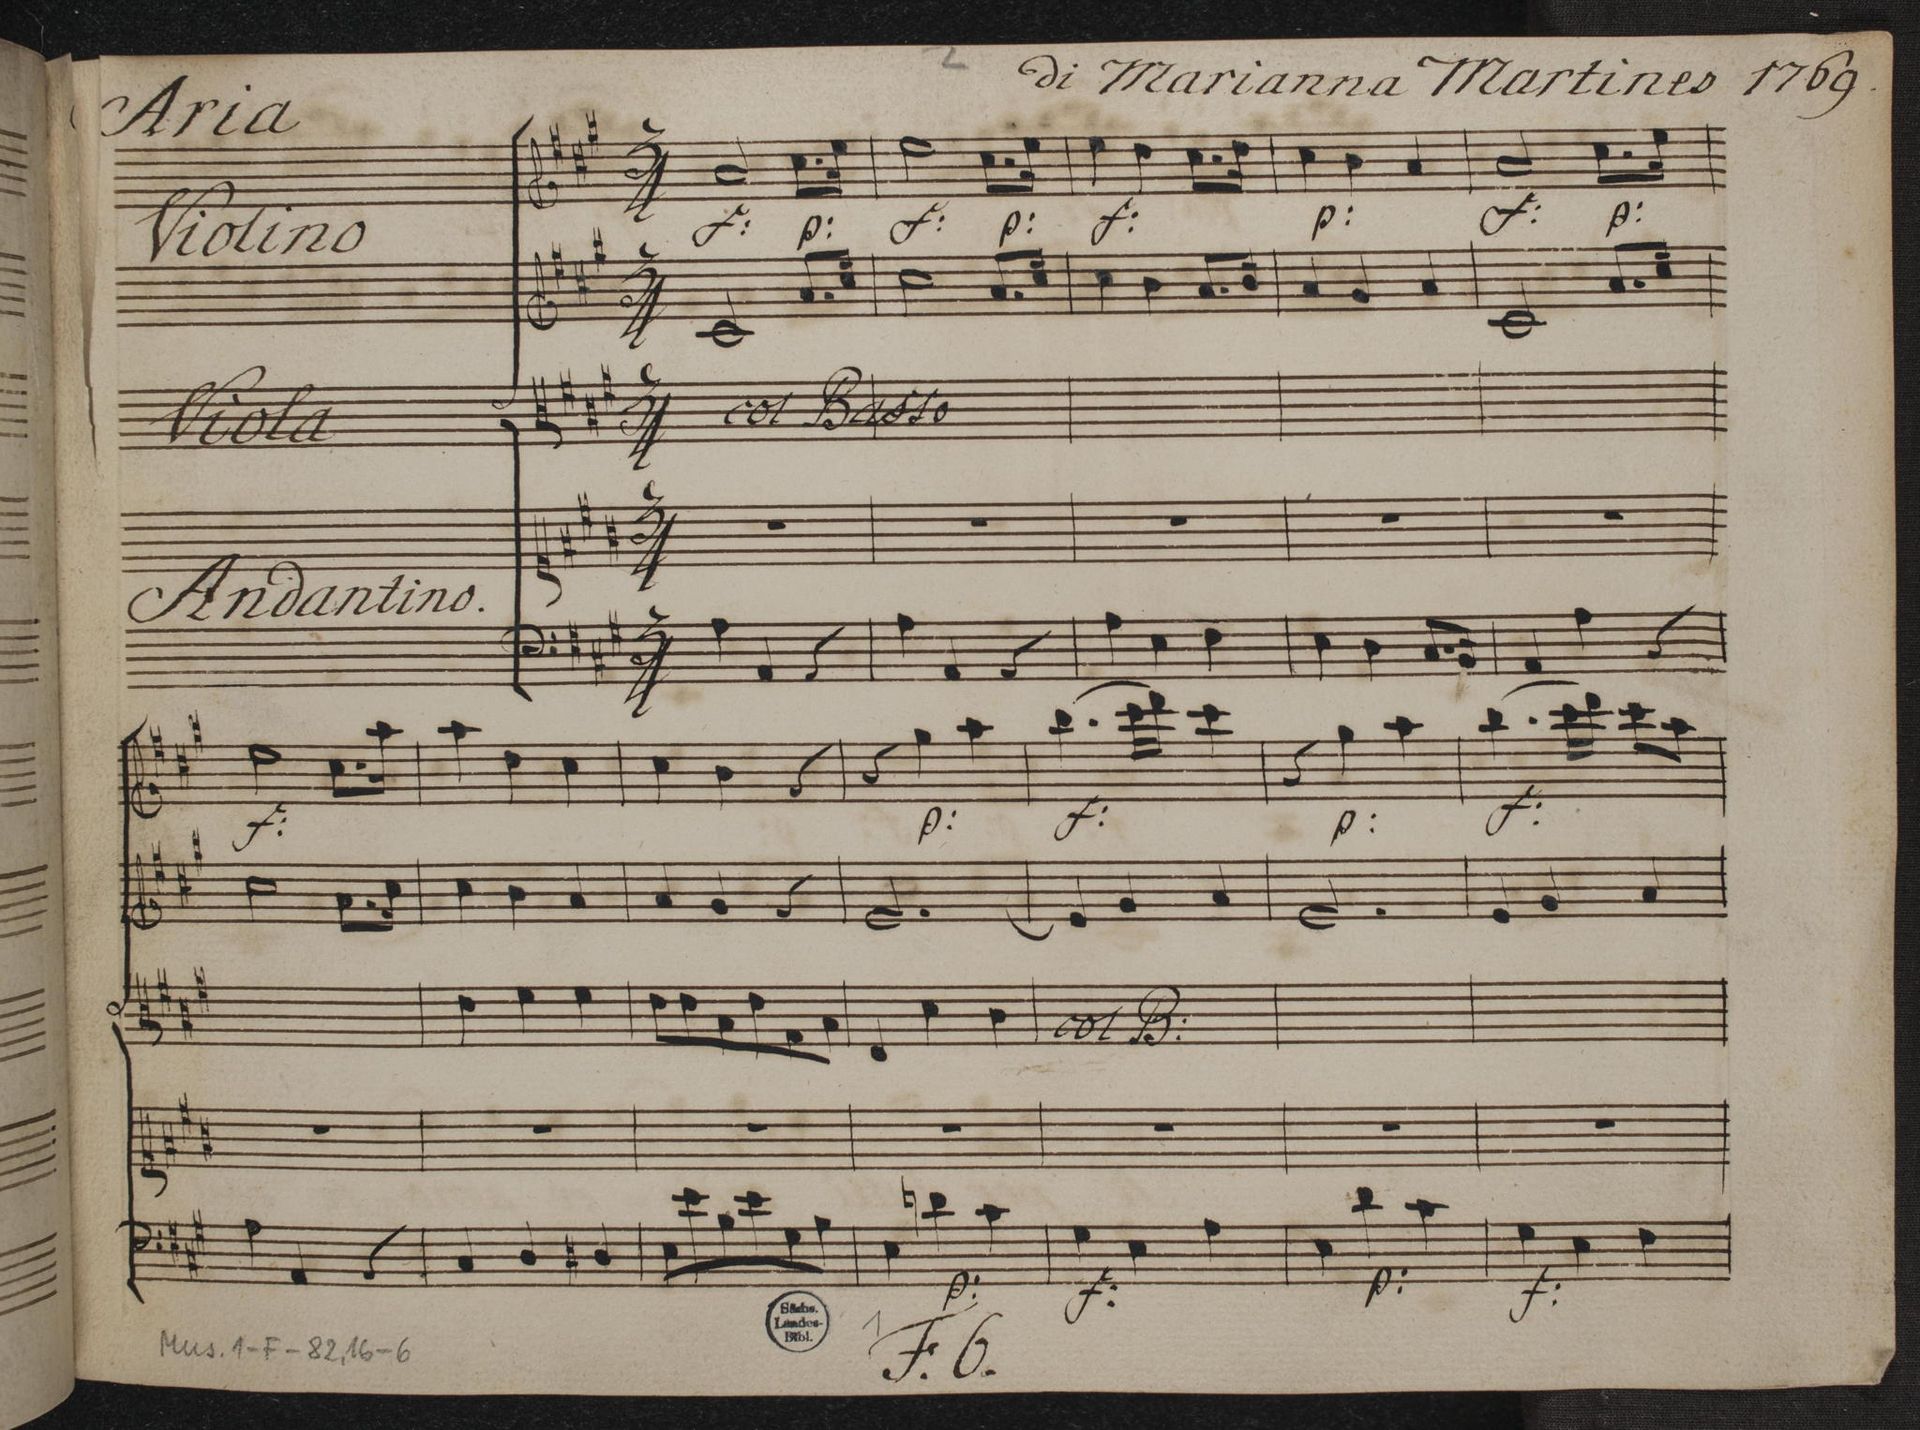 2
di Marianna Martines 1769.
Aria
Violino
f: p: f: p: f: p: f: p:
Viola
col Basso
Andantino.
f: p: f: p: f:
col B:
p: f: p: f:
Sächs.
Landes-
Bibl.
1
F. 6.
Mus. 1-F-82,16-6